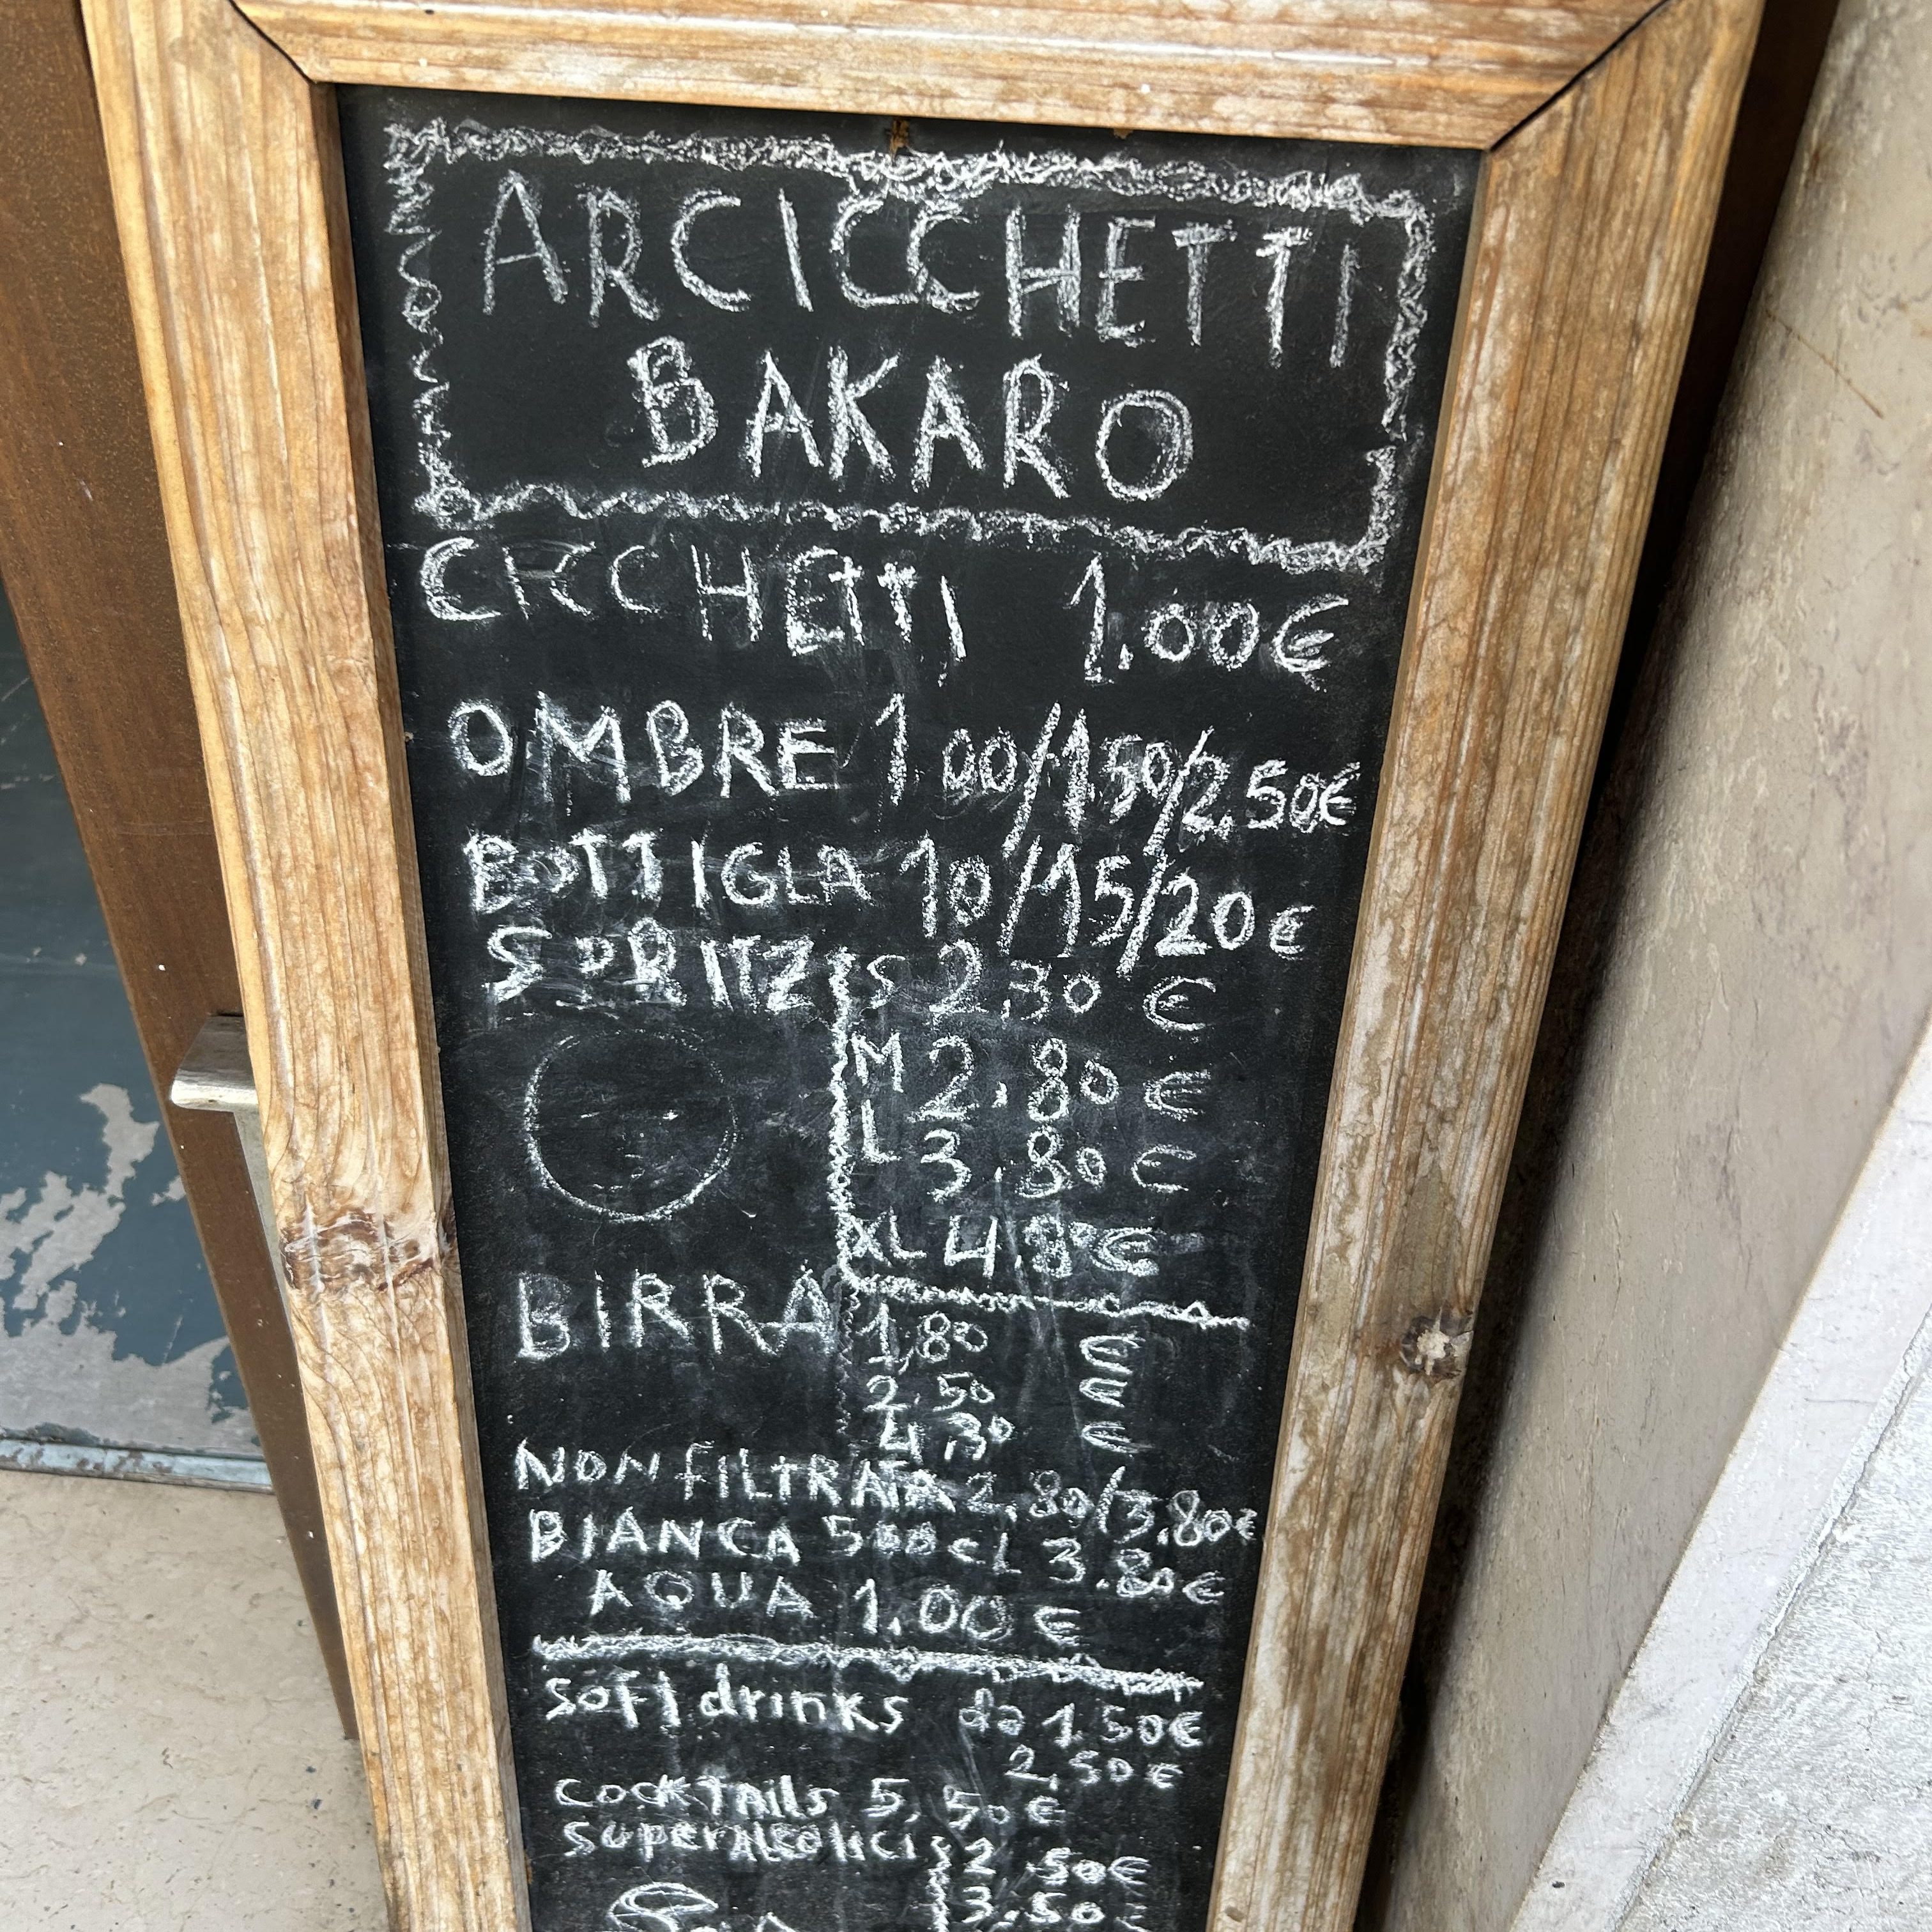 ARCICCHETTI
BAKARO
CICCHETTI 1.00€
OMBRE 1 00/1 50/2.50€
BOTTIGLA 10/15/20€
SPRITZ S 2,30 €
M 2.80 €
L 3,80 €
XL 4.80€
BIRRA 1,80 €
2,50 €
4 30 €
NON FILTRATA 2,80/3.80€
BIANCA 500 CL 3.80€
AQUA 1.00 €
Soft drinks da 1,50€
2,50€
COCKTAils 5,50€
SuperALcolici 2,50€
3,50